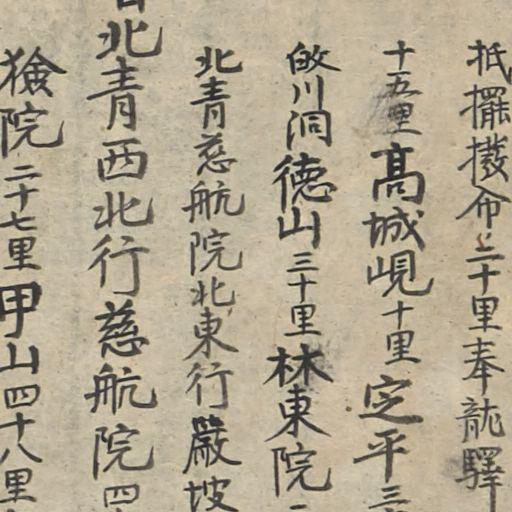 抵擺撥命二十里奉龍驛
十五里高城峴十里定平三
㿣川洞德山三十里林東院二
北青慈航院北東行嚴坡
北青西北行慈航院四
獫院二十七里甲山四十八里